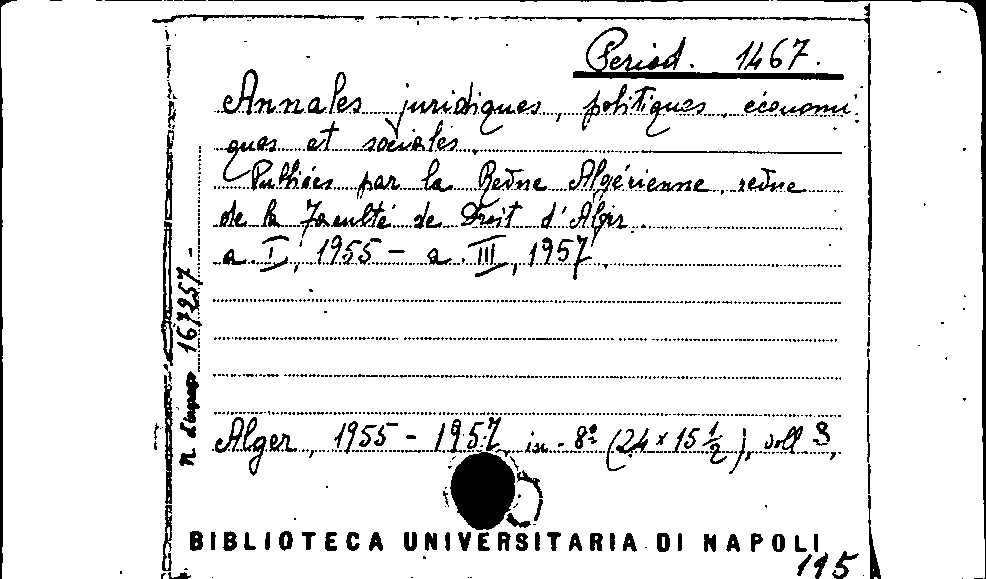 Period. 1467.
Annales juridiques, politiques, économi-
ques et sociales.
Publiées par la Revue Algérienne, revue
de la Faculté de Droit d'Alger.
a. I, 1955 - a. III, 1957.
n. d'ingresso 167257 -
Alger, 1955 - 1957, in-8º (24 x 15 1/2), voll 3,
BIBLIOTECA UNIVERSITARIA DI NAPOLI
195